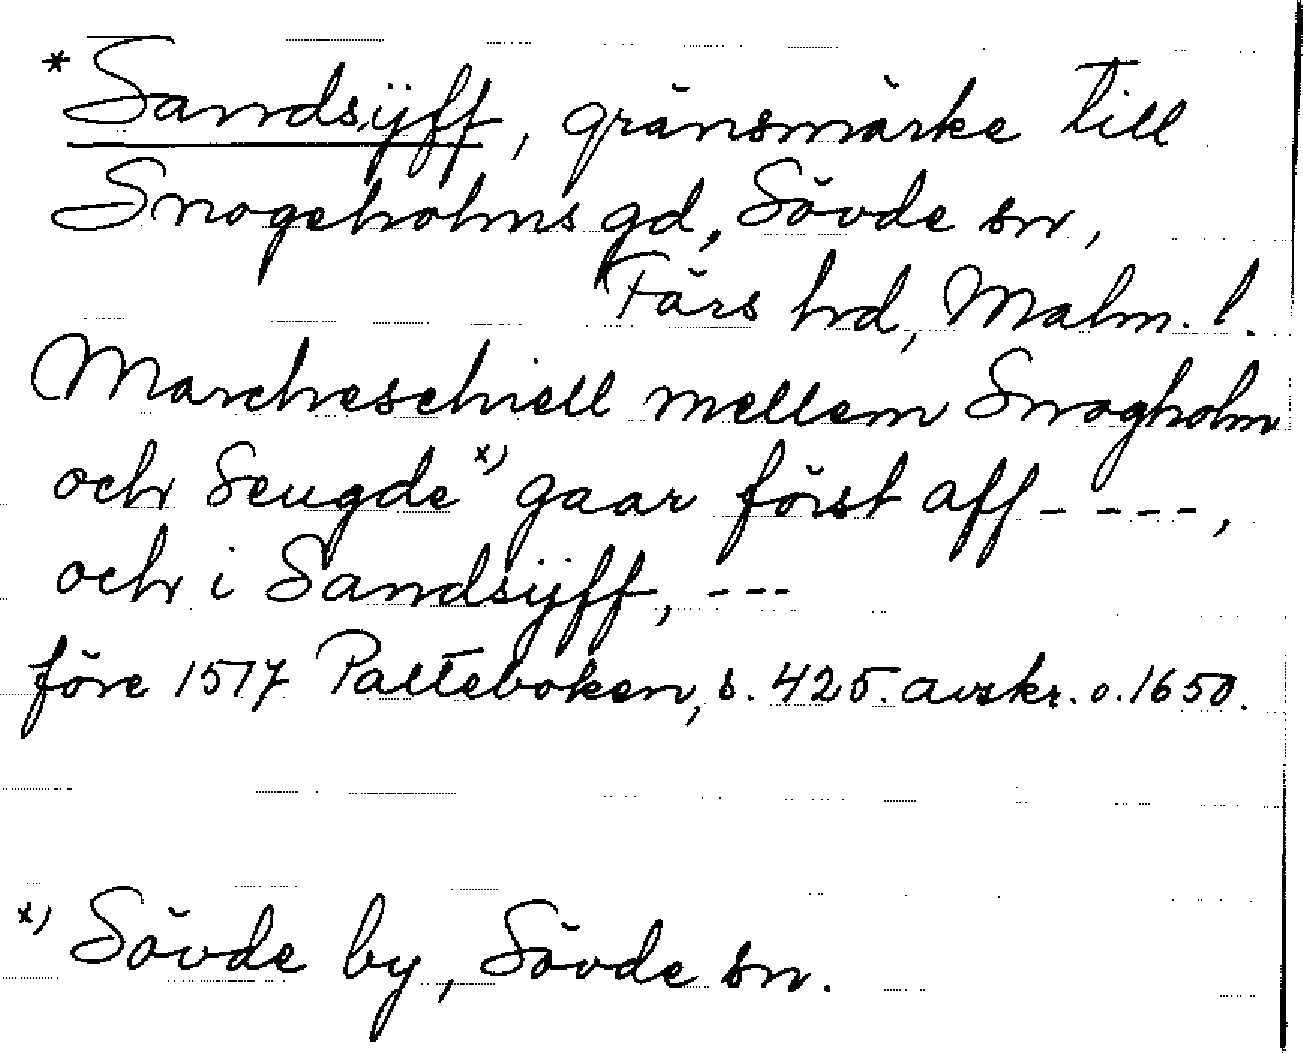 * Sandsÿff, gränsmärke till
Snogeholms gd, Sövde sn,
Färs hd, Malm. l.
Marcheschiell mellem Snogholm
och Seugde x) gaar först aff - - - -,
och i Sandsÿff, - - -
före 1517 Palteboken, s. 425. avskr. o. 1650.
x) Sövde by, Sövde sn.